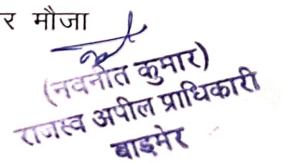 र मौजा
(नवनीत कुमार)
राजस्व अपील प्राधिकारी
बाड़मेर